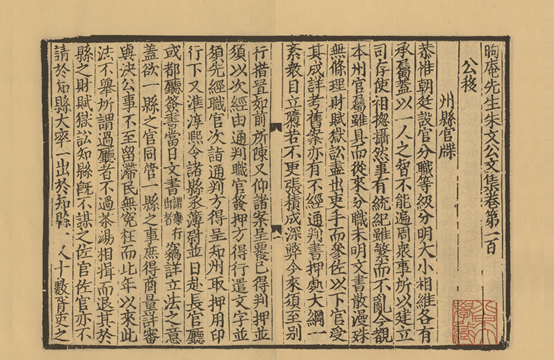 晦庵先生朱文公文集卷第一百
公移
州縣官牒
恭惟朝廷設官分職等級分明大小相維各有
承屬蓋以一人之智不能遍周衆事所以建立
司存使相揔攝然事有統紀雖繁而不亂今觀
本州官屬雖具而從來分職未明文書散漫殊
無條理財賦獄訟盡出吏手而參佐以下官受
其成詳考舊案亦有不經通判書押處大綱一
紊衆目立隳若不更張積成深弊今來須至別
行措置如前所陳又仰諸案呈覆已得判押並
須以次經由通判職官簽押方得行遣文字並
須先經職官次詣通判方得呈知州取押用印
行下又準淳熙令諸縣丞簿尉並日赴長官廳
或都廳簽書當日文書謂應行出者竊詳立法之意
蓋欲一縣之官同管一縣之事庶得商量詳審
與決公事不至留滯民無冤枉而比年以來此
法不舉所謂過廳者不過茶湯相揖而退其於
縣之財賦獄訟知縣既不謀之佐官佐官亦不
請於知縣大率一出於知縣 人十數胥吏之